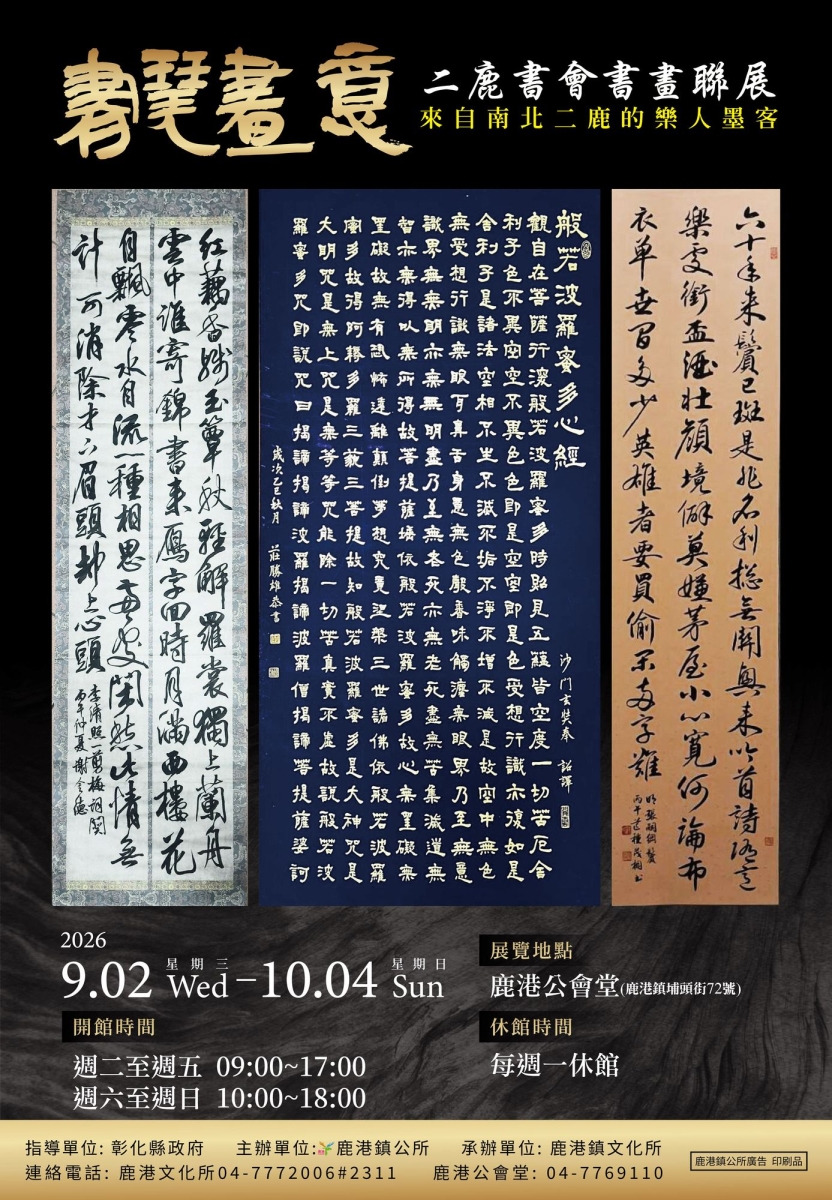 書琴畫意
二鹿書會書畫聯展
來自南北二鹿的樂人墨客
紅藕香殘玉簟秋輕解羅裳獨上蘭舟
雲中誰寄錦書來雁字回時月滿西樓花
自飄零水自流一種相思兩處閒愁此情無
計可消除才下眉頭卻上心頭
李清照一剪梅詞闋
丙午仲夏謝金德
般若波羅蜜多心經
沙門玄奘奉 詔譯
觀自在菩薩行深般若波羅蜜多時照見五蘊皆空度一切苦厄舍
利子色不異空空不異色色即是空空即是色受想行識亦復如是
舍利子是諸法空相不生不滅不垢不淨不增不減是故空中無色
無受想行識無眼耳鼻舌身意無色聲香味觸法無眼界乃至無意
識界無無明亦無無明盡乃至無老死亦無老死盡無苦集滅道無
智亦無得以無所得故菩提薩埵依般若波羅蜜多故心無罣礙無
罣礙故無有恐怖遠離顛倒夢想究竟涅槃三世諸佛依般若波羅
蜜多故得阿耨多羅三藐三菩提故知般若波羅蜜多是大神咒是
大明咒是無上咒是無等等咒能除一切苦真實不虛故說般若波
羅蜜多咒即說咒曰揭諦揭諦波羅揭諦波羅僧揭諦菩提薩婆訶
歲次乙巳秋月 莊勝雄恭書
六十年來鬢已斑是非名利總無關興來吟首詩隨意
樂處銜盃酒壯顏境僻莫嫌茅屋小心寬何論布
衣單世間多少英雄者要買偷閒兩字難
2026
9.02 星期三 Wed–10.04 星期日 Sun
開館時間
週二至週五 09:00~17:00
週六至週日 10:00~18:00
展覽地點
鹿港公會堂(鹿港鎮埔頭街72號)
休館時間
每週一休館
指導單位: 彰化縣政府 主辦單位: 鹿港鎮公所 承辦單位: 鹿港鎮文化所
連絡電話: 鹿港文化所04-7772006#2311 鹿港公會堂: 04-7769110
鹿港鎮公所廣告 印刷品